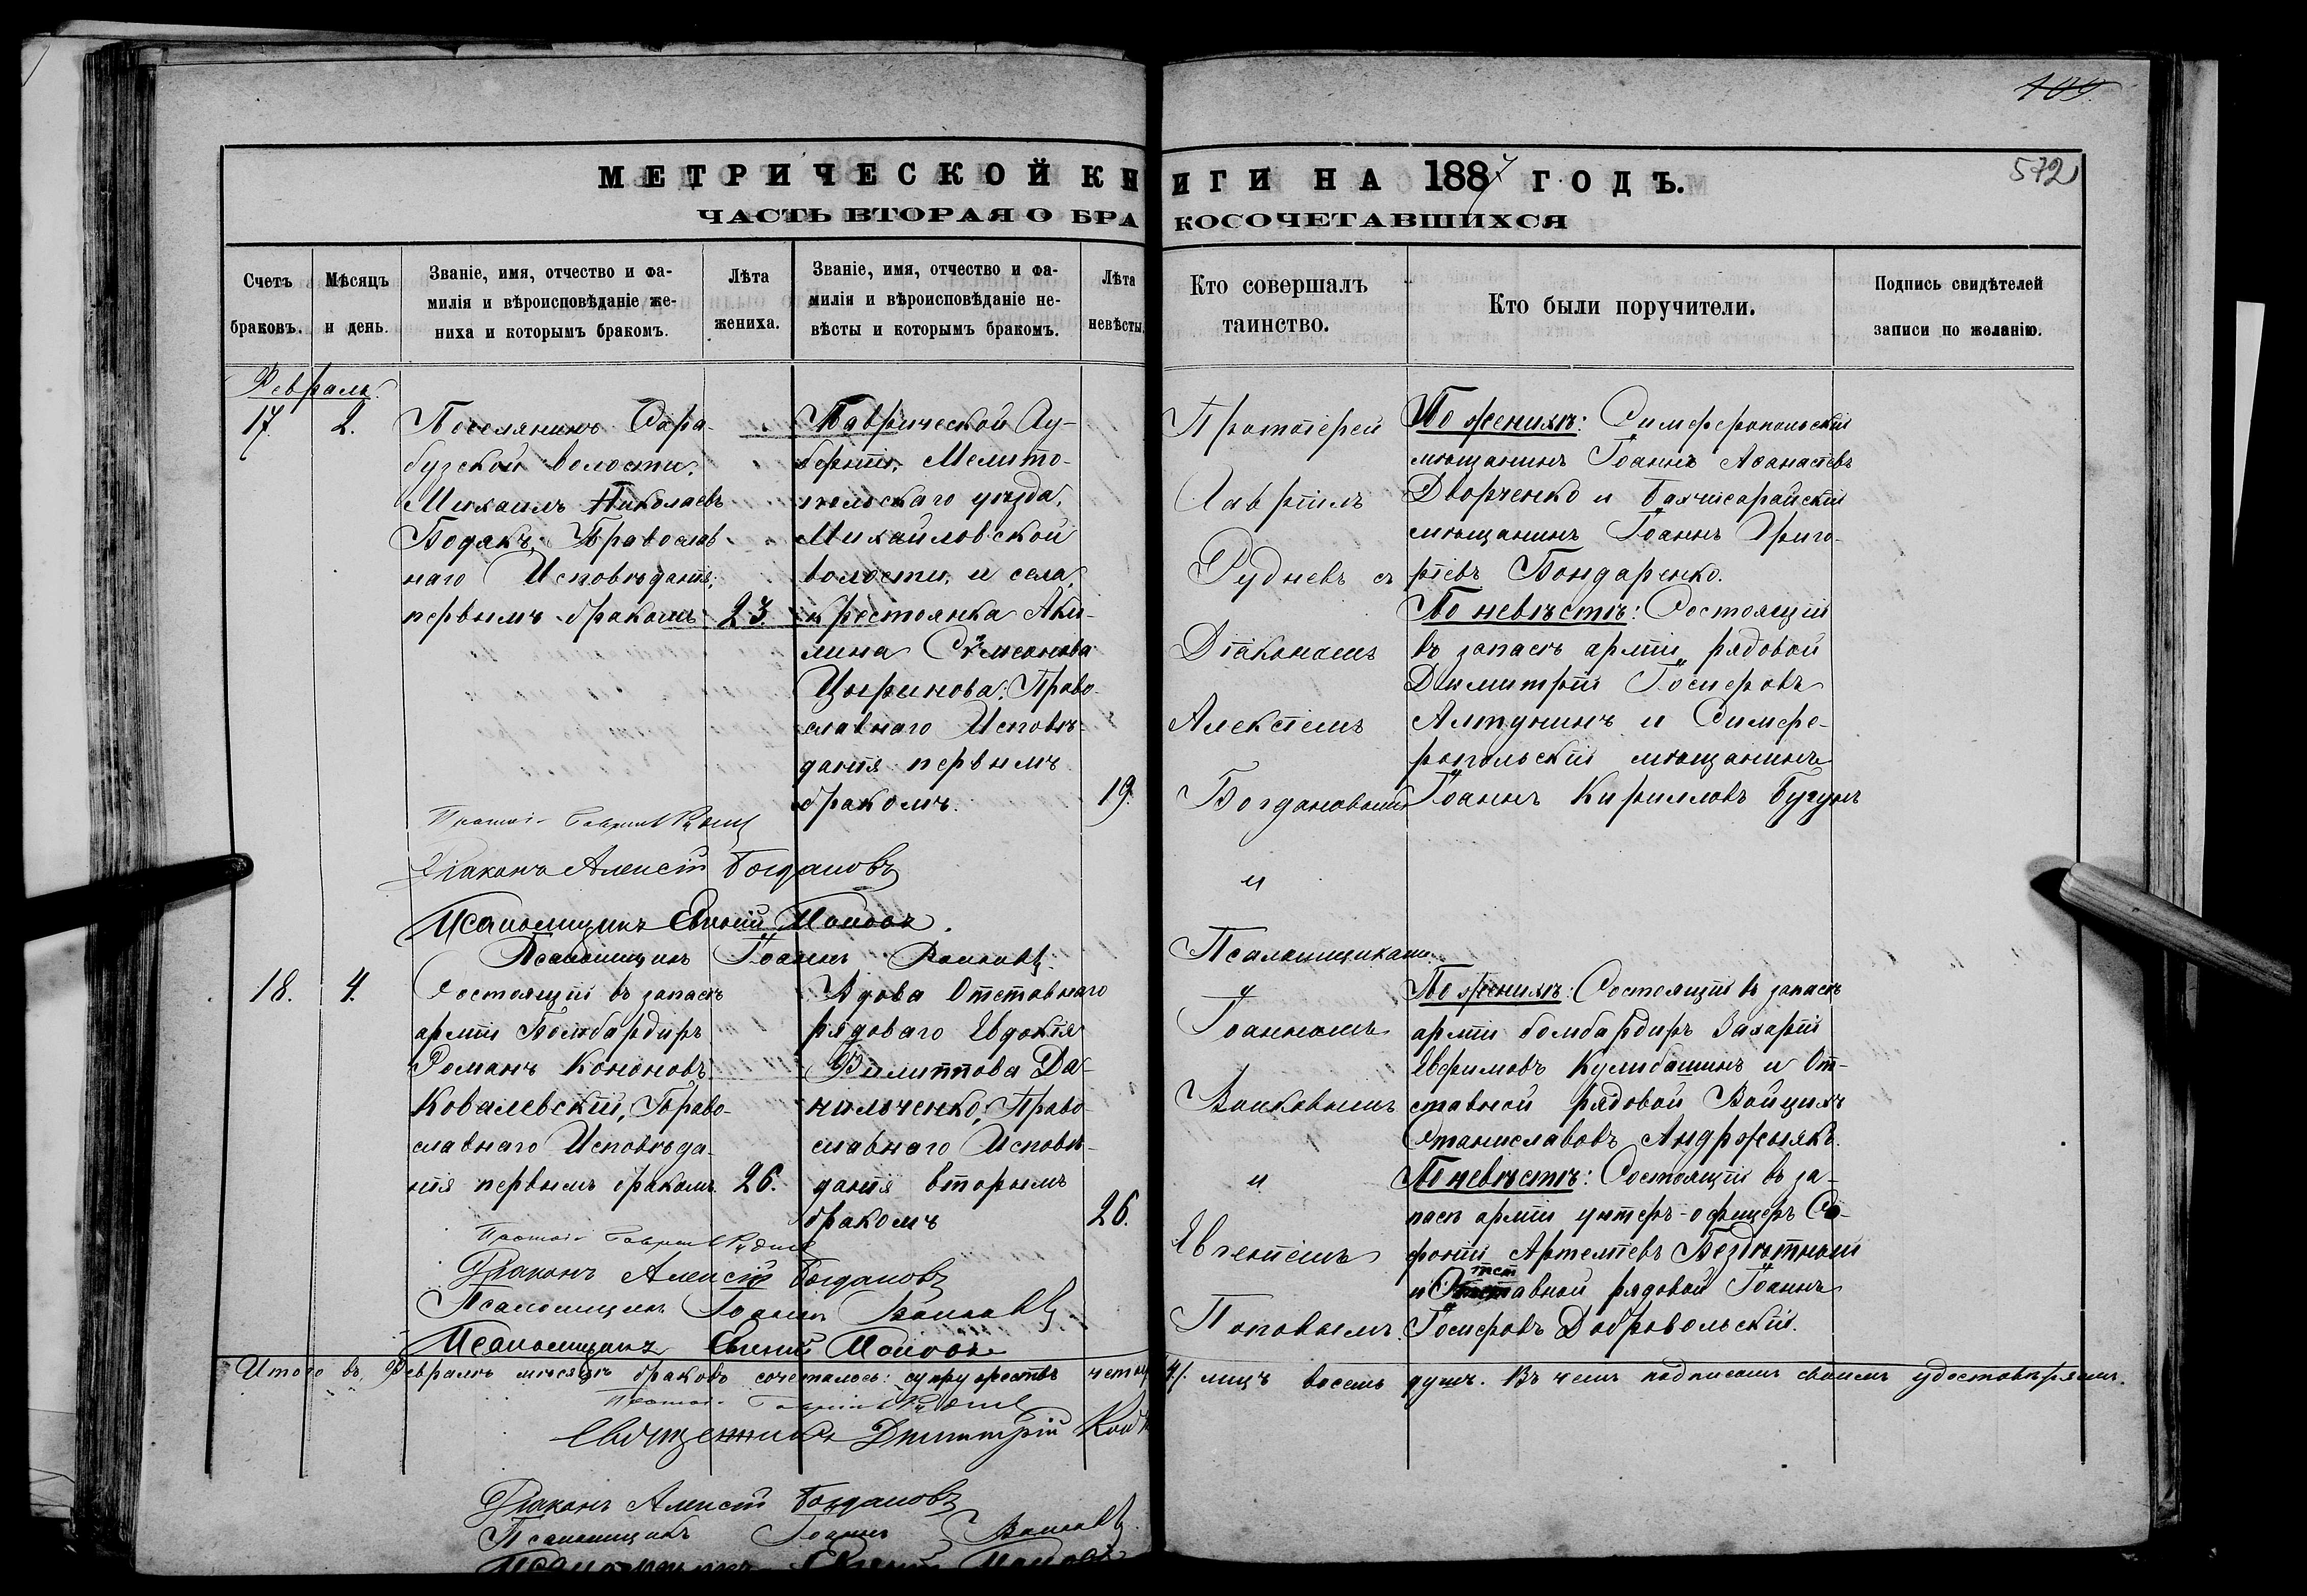 109.
572
МЕТРИЧЕСКОЙ КНИГИ НА 1887 ГОДЪ.
ЧАСТЬ ВТОРАЯ О БРАКОСОЧЕТАВШИХСЯ
Счетъ браковъ.
Мѣсяцъ и день.
Званіе, имя, отчество и фа-
милія и вѣроисповѣданіе же-
ниха и которымъ бракомъ.
Лѣта
жениха.
Званіе, имя, отчество и фа-
милія и вѣроисповѣданіе не-
вѣсты и которымъ бракомъ.
Лѣта
невѣсты.
Кто совершалъ
таинство.
Кто были поручители.
Подпись свидѣтелей
записи по желанію.
Февраль.
17. 2.
Поселянинъ Сара-
бузской волости,
Михаилъ Николаевъ
Бодякъ, Православ
наго Исповѣданія,
первымъ бракомъ 23.
Таврической Гу-
берніи, Мелито-
польскаго уѣзда,
Михайловской
волости, и села,
крестьянка Аку-
лина Симеонова
Цыринова, Право-
славнаго Исповѣ-
данія первымъ
бракомъ. 19.
Протоіерей
Гавріилъ
Рудневъ съ
Діакономъ
Алексіемъ
Богдановымъ
и
Псаломщиками:
Іоанномъ
Волковымъ
и
Евгеніемъ
Поповымъ.
По женихѣ: Симферопольскій
мѣщанинъ Іоаннъ Аѳанасіевъ
Дворченко и Бахчисарайскій
мѣщанинъ Іоаннъ Григо-
ріевъ Бондаренко.
По невѣстѣ: Состоящій
въ запасѣ арміи рядовой
Димитрій Іосифовъ
Алтунинъ и Симфе-
ропольскій мѣщанинъ
Іоаннъ Кирилловъ Бугунъ
Протоі Гавріилъ Рудневъ
Діаконъ Алексій Богдановъ
Псаломщикъ Евгеній Поповъ.
Псаломщикъ Іоаннъ Волковъ
18. 4.
Состоящій въ запасѣ
арміи Бомбардиръ
Романъ Кононовъ
Ковалевскій, Право-
славнаго Исповѣда-
нія первымъ бракомъ. 26.
Вдова Отставнаго
рядоваго Евдокія
Филиппова Да-
нильченко, Право-
славнаго Исповѣ-
данія вторымъ
бракомъ 26.
По женихѣ: Состоящій въ запасѣ
арміи бомбардиръ Захарій
Евфимовъ Кулибашинъ и От-
ставной рядовой Войцихъ
Станиславовъ Андржеякъ.
По невѣстѣ: Состоящій въ за-
пасѣ арміи унтеръ-офицеръ Со-
фоній Артеміевъ Бездѣтный
и Отставной рядовой Іоаннъ
Іосифовъ Добровольскій.
Протоі Гавріилъ Рудневъ
Діаконъ Алексій Богдановъ
Псаломщикъ Іоаннъ Волковъ
Псаломщикъ Евгеній Поповъ
Итого въ Февралѣ мѣсяцѣ браковъ сочеталось: супружествъ четыре /4/. лицъ восемь душъ. Въ чемъ подписомъ своимъ удостовѣряемъ.
Протоі Гавріилъ Рудневъ
Священникъ Димитрій
Діаконъ Алексій Богдановъ
Псаломщикъ Іоаннъ Волковъ
Псаломщикъ Евгеній Поповъ